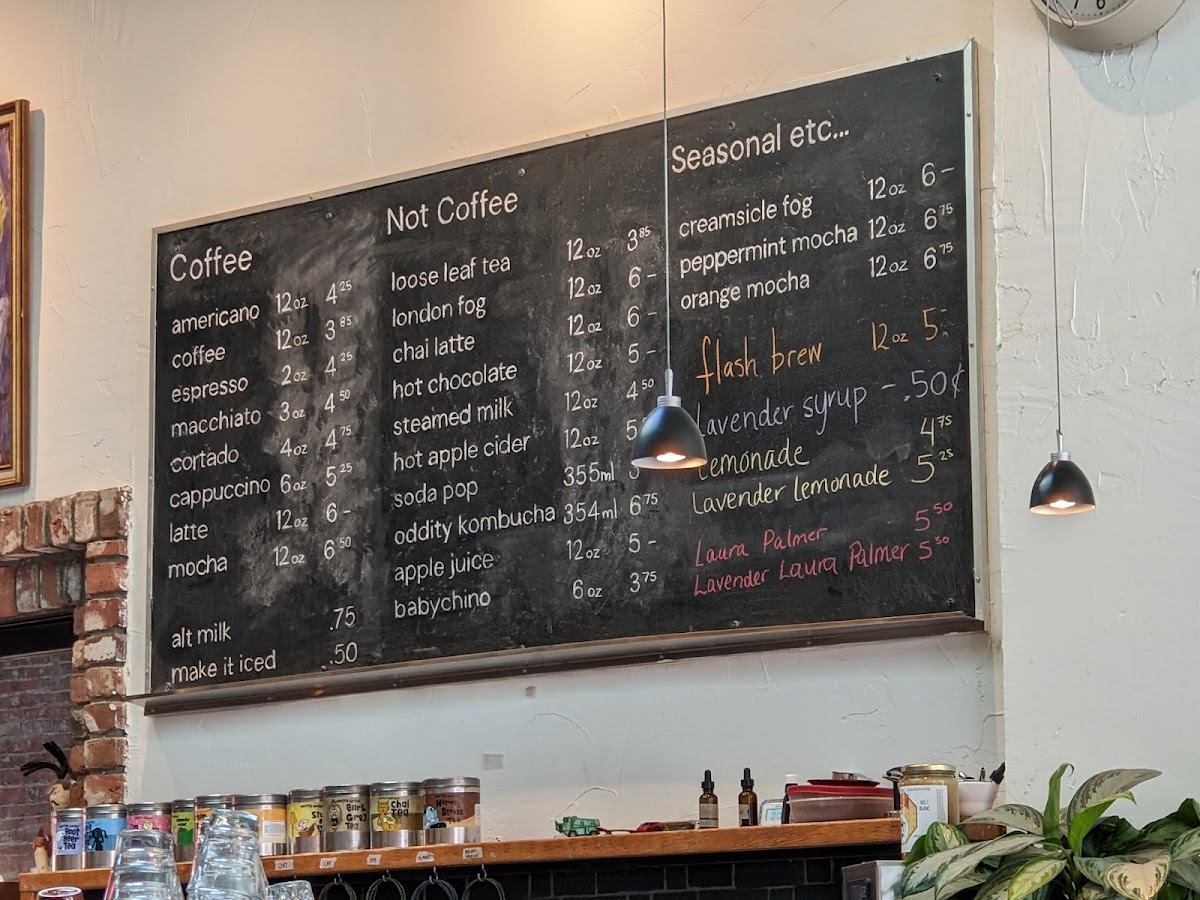 Coffee
americano 12oz 4 25
coffee 12oz 3 85
espresso 2oz 4 25
macchiato 3oz 4 50
cortado 4oz 4 75
cappuccino 6oz 5 25
latte 12oz 6 –
mocha 12oz 6 50
alt milk .75
make it iced .50
Not Coffee
loose leaf tea 12oz 3 85
london fog 12oz 6 –
chai latte 12oz 6 –
hot chocolate 12oz 5 –
steamed milk 12oz 4 50
hot apple cider 12oz
soda pop 355ml
oddity kombucha 354ml 6 75
apple juice 12oz 5 –
babychino 6oz 3 75
Seasonal etc...
creamsicle fog 12oz 6 –
peppermint mocha 12oz 6 75
orange mocha 12oz 6 75
flash brew 12oz 5 –
lavender syrup – .50¢
Lemonade 4 75
Lavender lemonade 5 25
Laura Palmer 5 50
Lavender Laura Palmer 5 50
Root
Beer
Tea
Earl
Grey
Tea
Chai
Tea